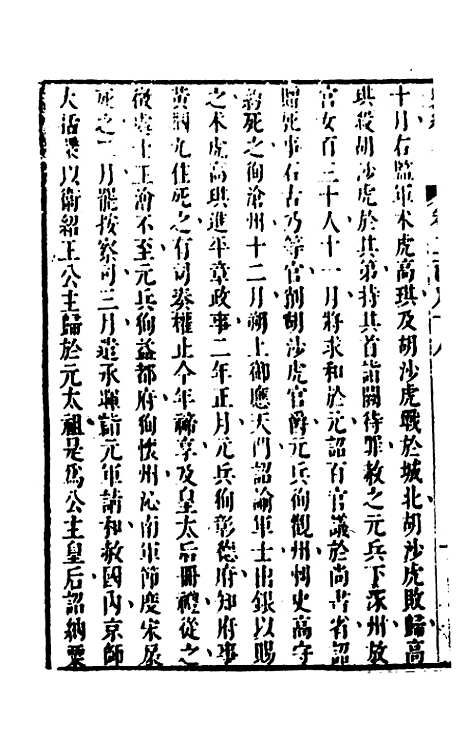 十月右監軍术虎高琪及胡沙虎戰於城北胡沙虎敗歸高
琪殺胡沙虎於其第持其首詣闕待罪赦之元兵下涿州放
宮女百三十人十一月將求和於元詔百官議於尚書省詔
贈死事石古乃等官削胡沙虎官爵元兵徇觀州刺史高守
約死之徇滄州十二月朔上御應天門詔諭軍士出銀以賜
之术虎高琪進平章政事二年正月元兵徇彰德府知府事
黃摑九住死之有司奏權止今年禘享及皇太后冊禮從之
徵處士王澮不至元兵徇益都府徇懷州沁南軍節度宋扆
死之二月罷按察司三月遣承暉詣元軍請和赦國內京師
大括粟以衛紹王公主歸於元太祖是爲公主皇后詔納粟